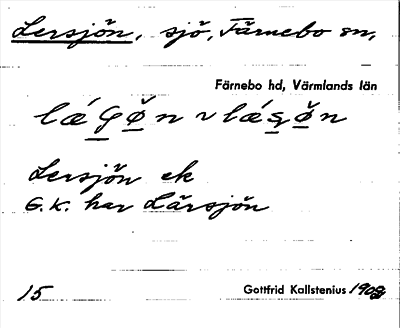 Lersjön, sjö, Färnebo sn,
Färnebo hd, Värmlands län
Lersjön ek
G.K. har Lärsjön
15 Gottfrid Kallstenius 1908